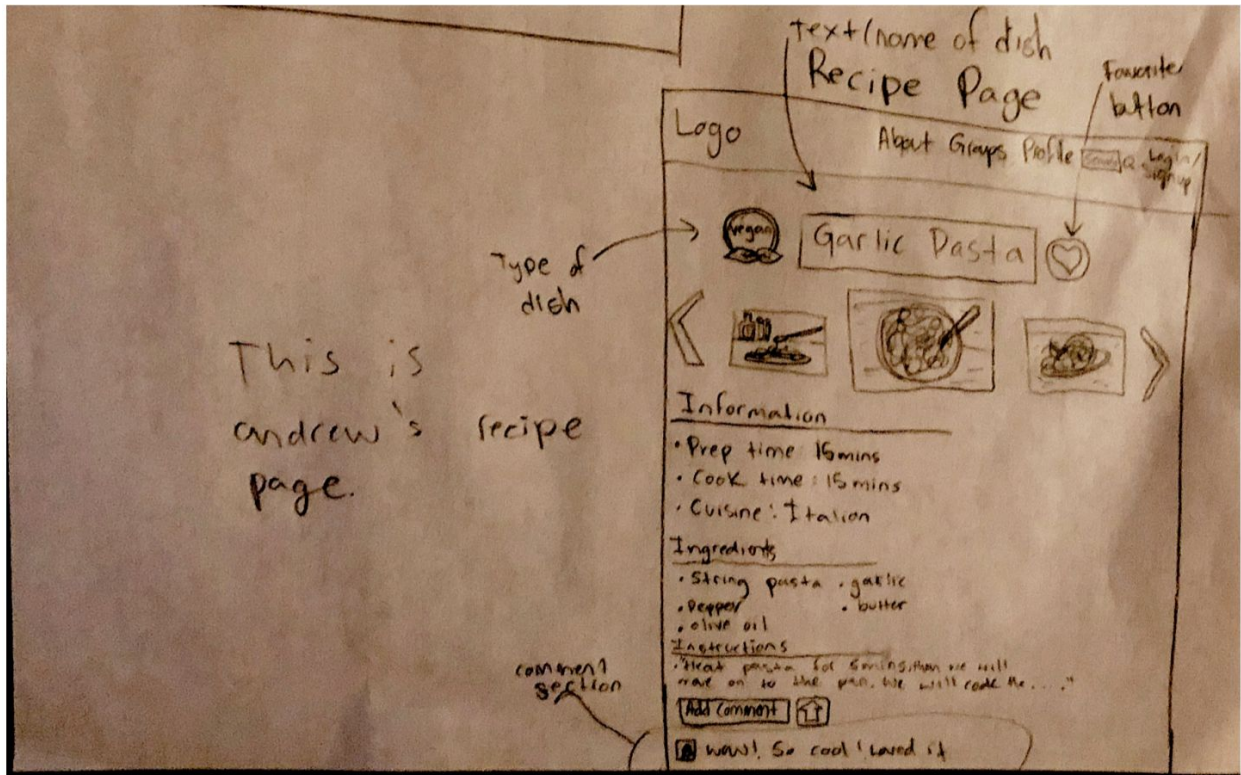 Text/(name of dish
Recipe Page
Favorite
button
Logo
About Groups Profile
Login/
Sign up
vegan
Garlic Pasta
Type of
dish
This is
andrew's recipe
page.
Information
• Prep time: 15mins
• Cook time: 15 mins
• Cuisine: Italian
Ingredients
• String pasta • garlic
• Pepper • butter
• olive oil
Instructions
• "Heat pasta for 5mins, then we will
move on to the pan. We will cook the ....."
comment
section
Add Comment
wow! So cool! Loved it